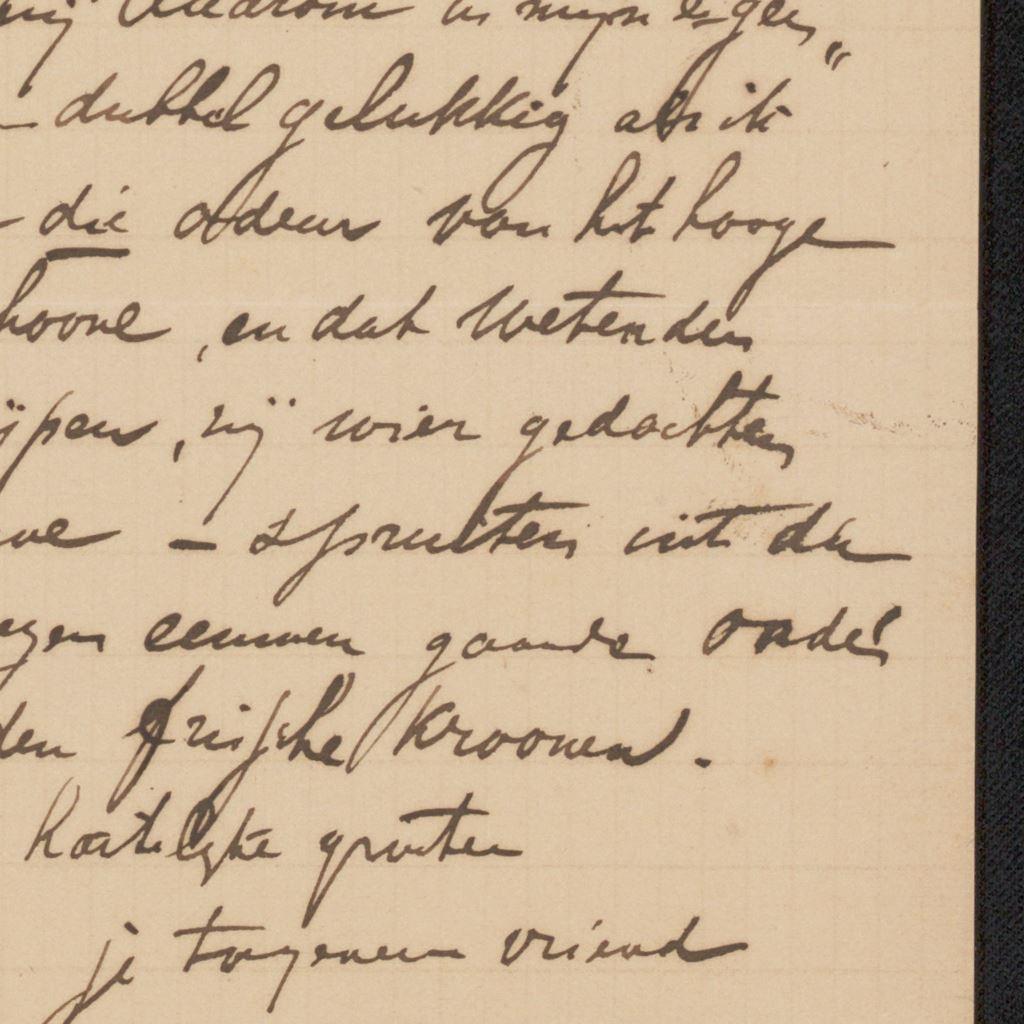 mij daarom in mijn eigen
– dubbel gelukkig als ik
– die odeur van het hooge
hoone, en dat Wetenden
ijpen, zij wier gedachten
we – spruiten uit de
egen eeuwen gaande oude
den frissche Kroonen.
Hartelijke groeten
je toegenegen vriend